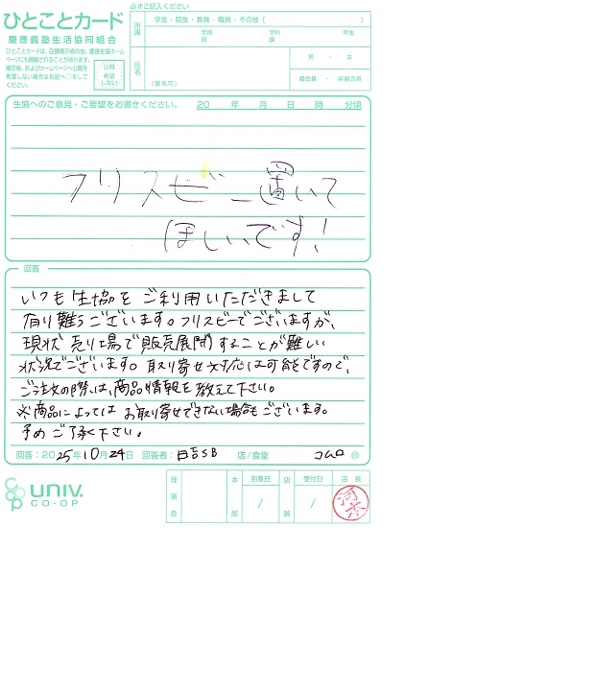 必ずご記入ください
ひとことカード
慶應義塾生活協同組合
ひとことカードは、店頭掲示板の他、慶應生協ホームページにも掲載されることがあります。
掲示板、およびホームページへ公開を希望しない場合は右記へ○をしてください。
公開希望しない
所属
学生・院生・教員・職員・その他（　　　）
学部
学科
年生
氏名
（匿名可）
男 ・ 女
組合員 ・ 非組合員
生協へのご意見・ご要望をお書きください。 20　年　月　日　時　分頃
フリスビー置いて
ほしいです!
回答
いつも生協をご利用いただきまして
有り難うございます。フリスビーでございますが、
現状売り場で販売展開することが難しい
状況でございます。取り寄せ対応は可能ですので、
ご注文の際は、商品情報を教えて下さい。
※商品によってはお取り寄せできない場合もございます。
予めご了承下さい。
回答：2025年10月24日 回答者：日吉SB 店/食堂 コムロ ㊞
UNIV.
CO-OP
理事会
本部
到着日
/
店舗
受付日
/
店長